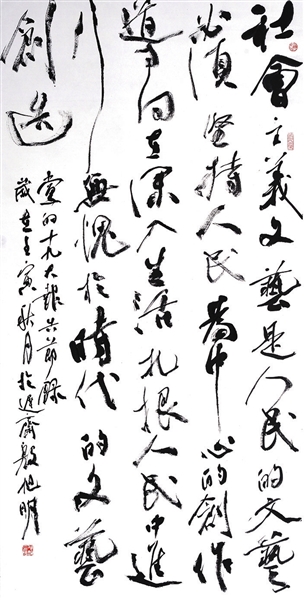 社會主義文藝是人民的文藝
必須堅持人民為中心的創作
導向在深入生活扎根人民中進
行無愧於時代的文藝
創造
党的十九大報告節錄
歲在壬寅秋月於